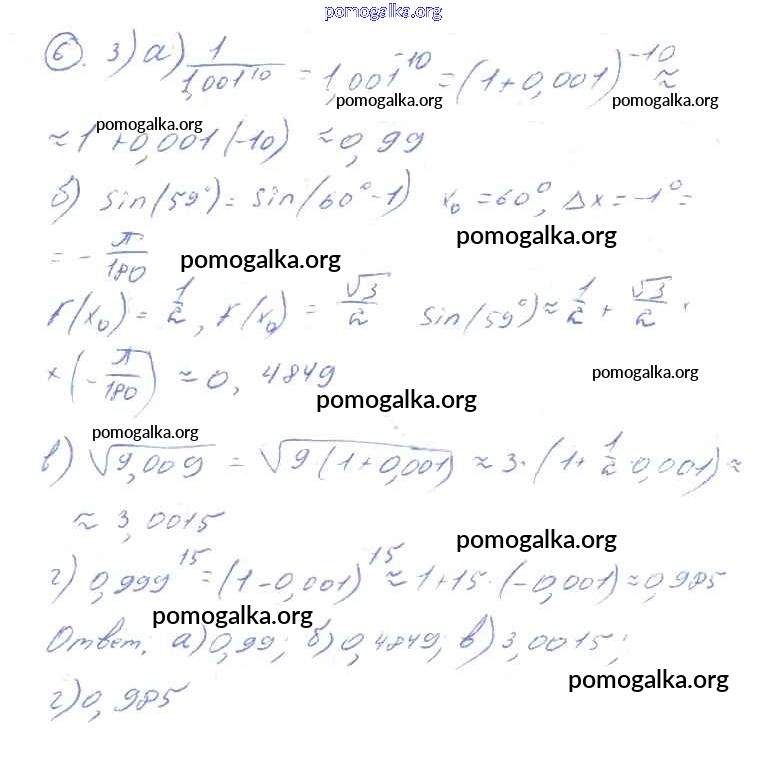 pomogalka.org
6. 3) а) 1/1,001^10 = 1,001^-10 = (1+0,001)^-10 ≈
pomogalka.org pomogalka.org
pomogalka.org
≈ 1+0,001(-10) ≈ 0,99
б) sin(59°) = sin(60°-1) x₀ = 60°, Δx = -1° =
pomogalka.org
= - π/180
pomogalka.org
f(x₀) = 1/2, f(x₀) = √3/2 sin(59°) ≈ 1/2 + √3/2 ×
× (- π/180) ≈ 0,4849
pomogalka.org
pomogalka.org
pomogalka.org
в) √9,009 = √9(1+0,001) ≈ 3·(1+ 1/2 ·0,001) ≈
≈ 3,0015
pomogalka.org
г) 0,999^15 = (1-0,001)^15 ≈ 1+15·(-0,001) ≈ 0,985
pomogalka.org
Ответ. а) 0,99; б) 0,4849; в) 3,0015;
pomogalka.org
г) 0,985